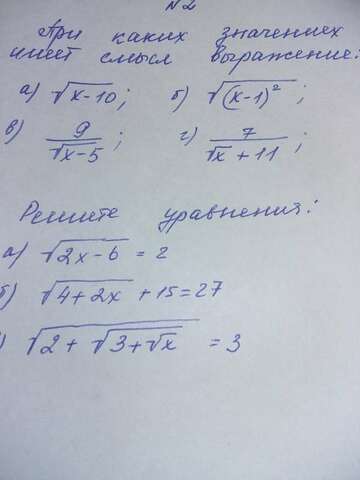 N2
При каких значениях
имеет смысл выражение:
а) √(x-10); б) √((x-1)²);
в) 9/(√x-5); г) 7/(√x+11);
Решите уравнения:
а) √(2x-6) = 2
б) √(4+2x) + 15=27
) √(2+√(3+√x)) = 3